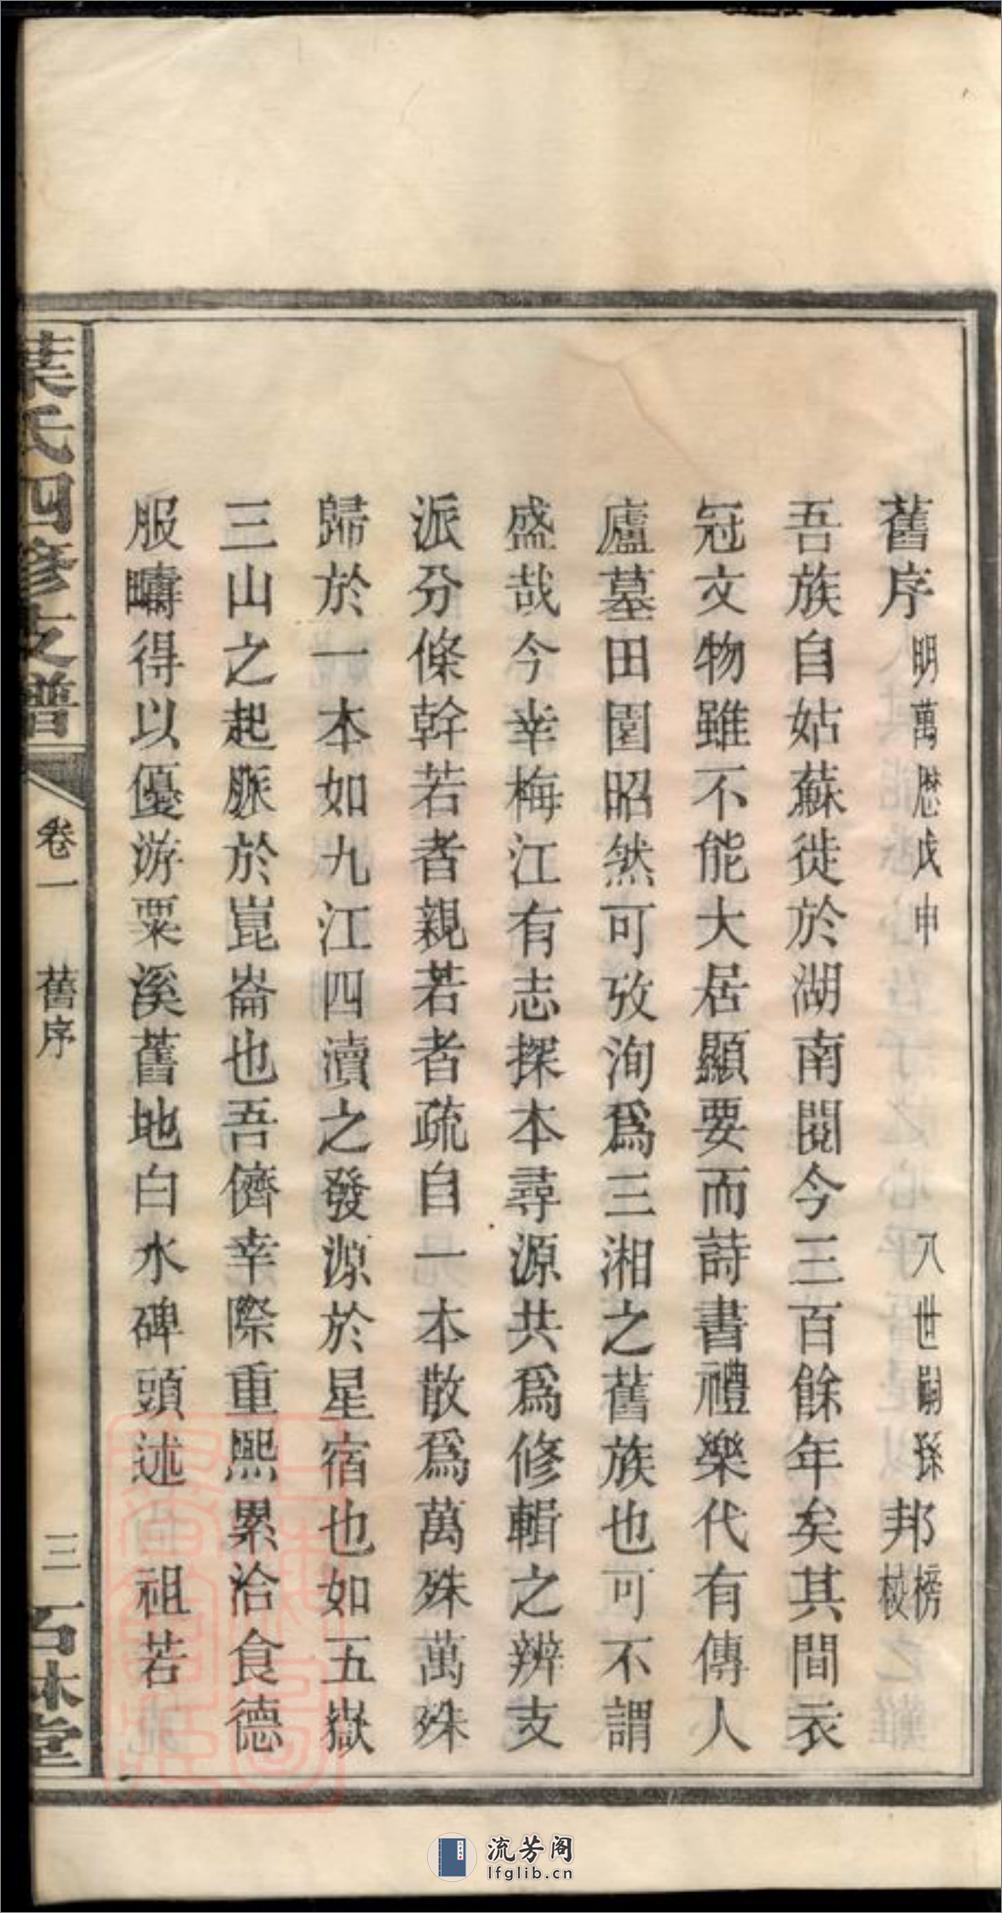 舊序 明萬歷戊申 八世嗣孫 邦 榜 㭿
吾族自姑蘇徙於湖南閱今三百餘年矣其間衣
冠文物雖不能大居顯要而詩書禮樂代有傳人
廬墓田園昭然可攷洵爲三湘之舊族也可不謂
盛哉今幸梅江有志探本尋源共爲修輯之辨支
派分條幹若者親若者疏自一本散爲萬殊萬殊
歸於一本如九江四瀆之發源於星宿也如五嶽
三山之起脈於崑崙也吾儕幸際重熙累洽食德
服疇得以優游粟溪舊地白水碑頭述 祖若
葉氏四修支譜
卷一 舊序
三 石林堂
流芳阁
lfglib.cn